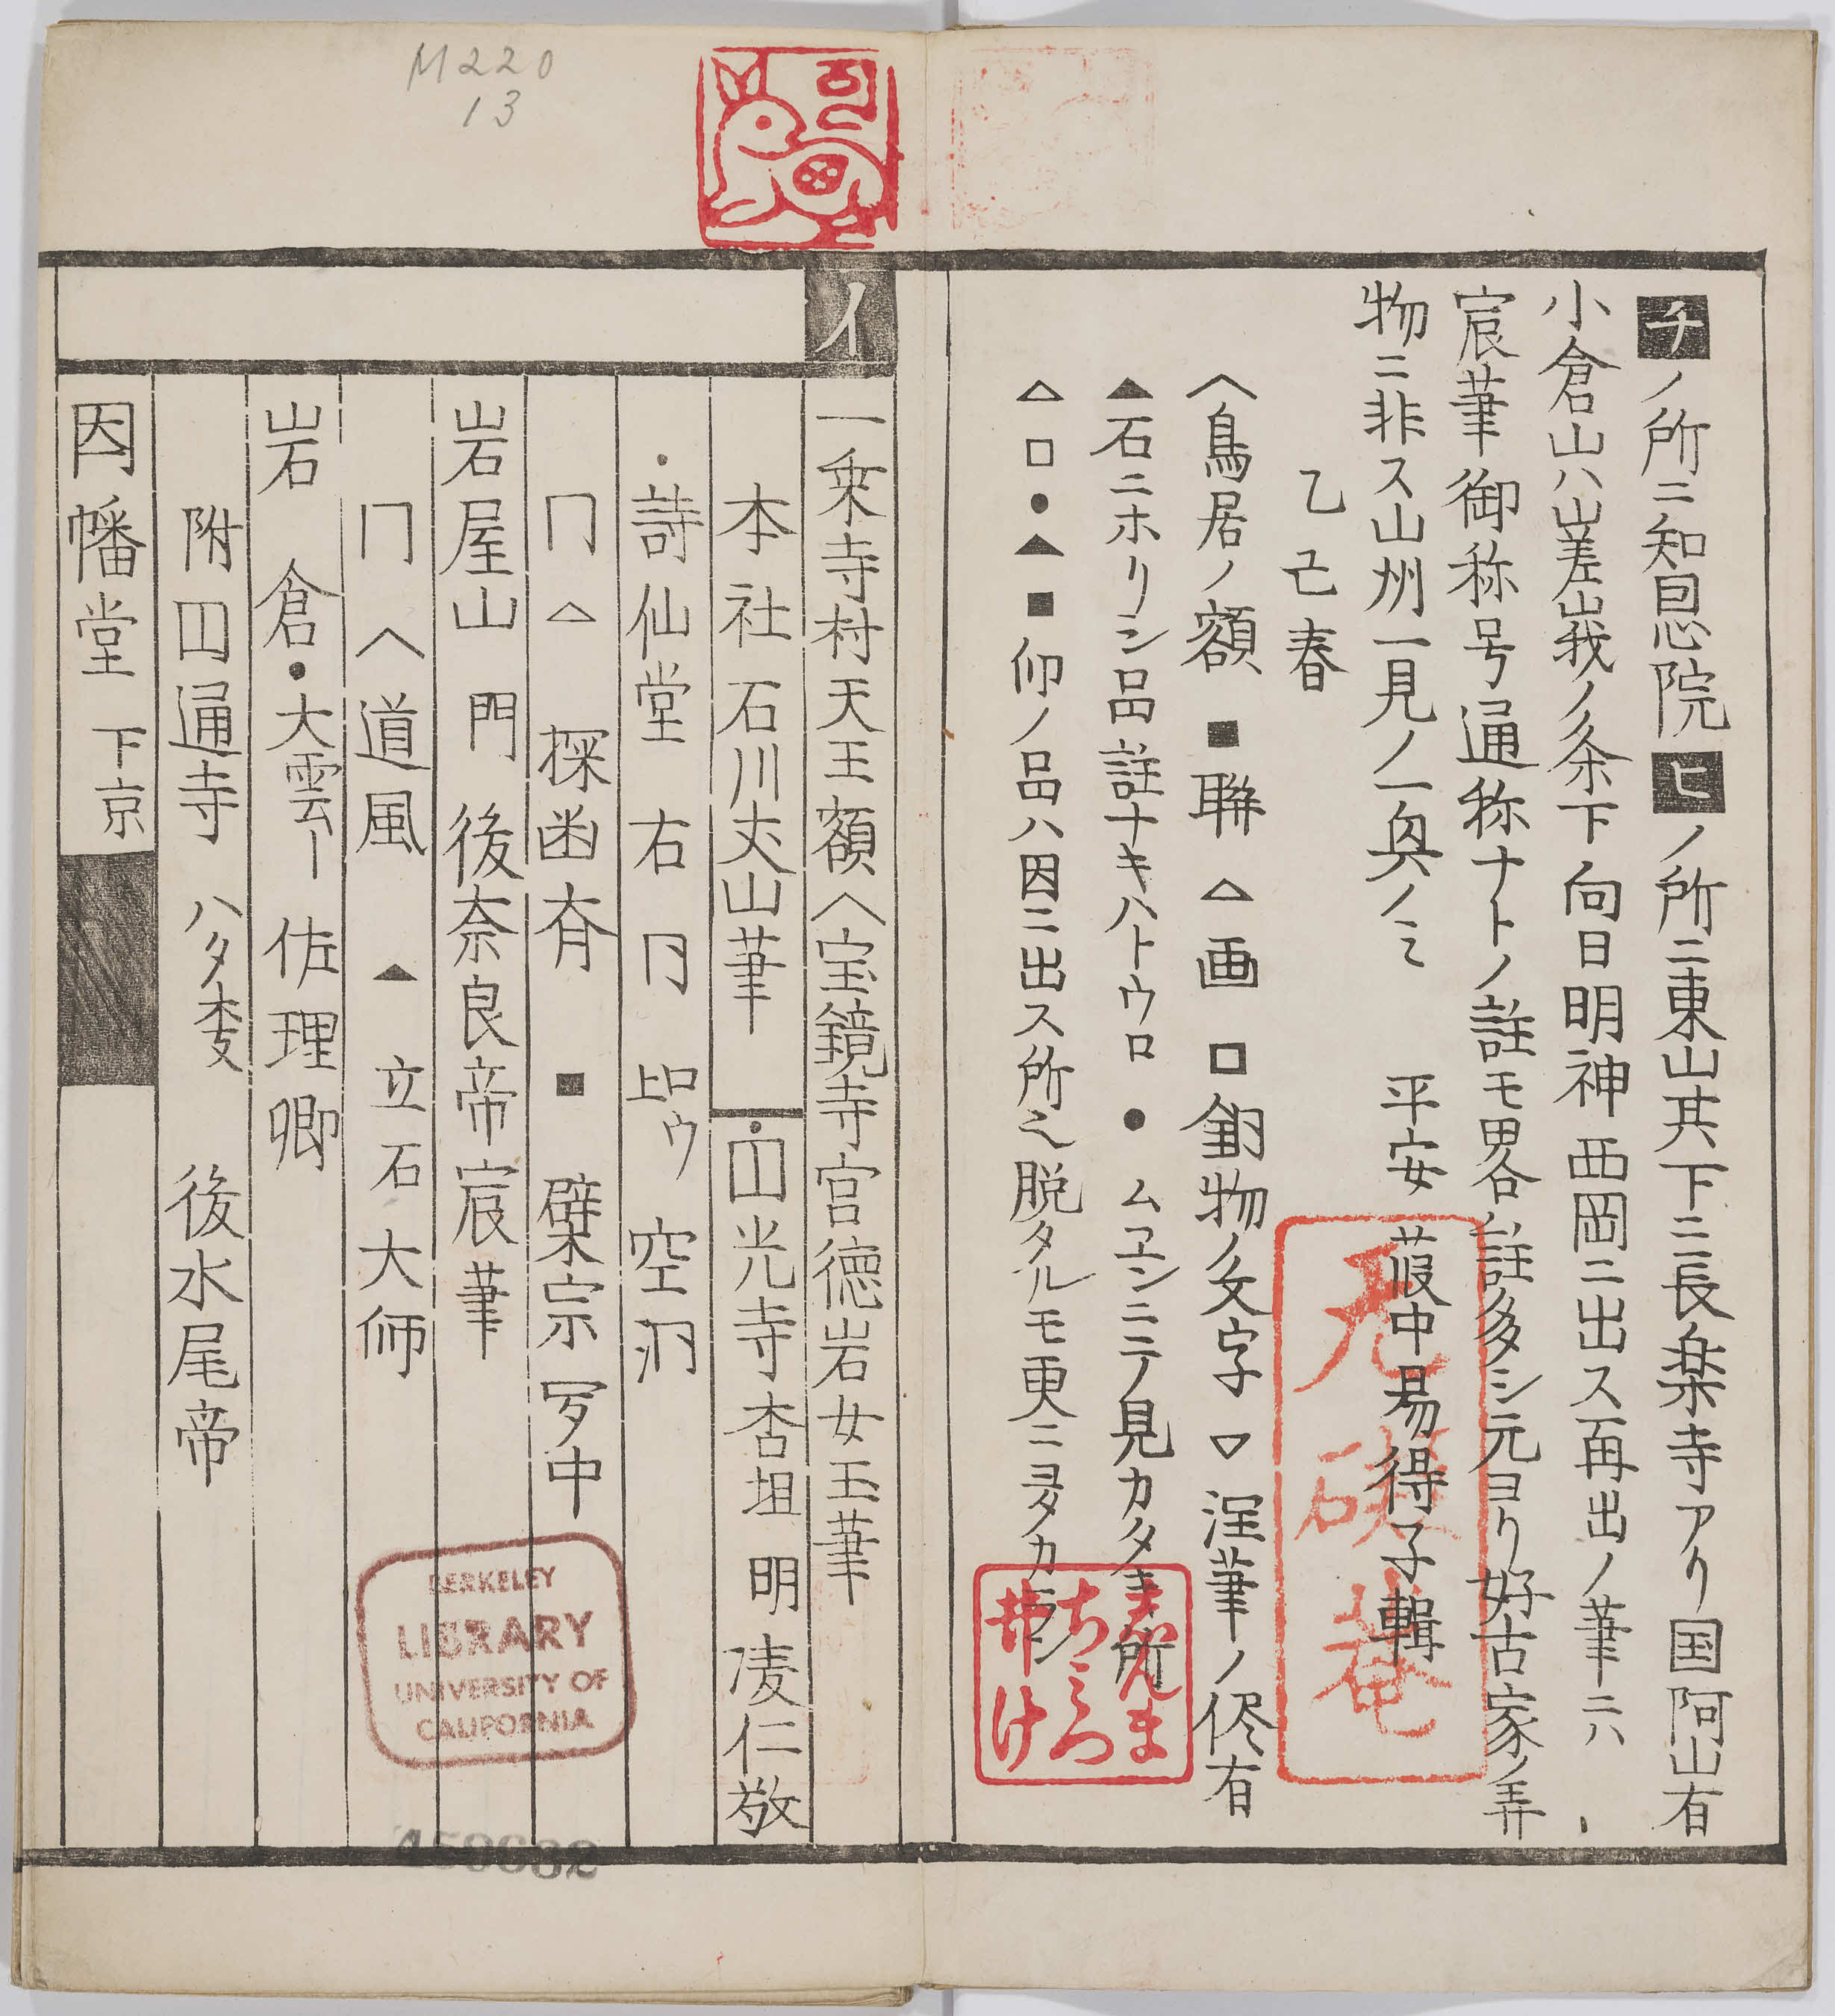 チノ所ニ知恩院ヒノ所ニ東山其下ニ長楽寺アリ国阿山有
小倉山ハ嵯峨ノ条下向日明神西岡ニ出ス再出ノ筆ニハ
宸筆御称号通称ナトノ註モ畧合註多シ元ヨリ好古家ノ弄
物ニ非ス山州一見ノ一具ノミ
乙巳春 平安 葭中易得子輯
へ鳥居ノ額 ■聯 △画 □鋳物ノ文字 ▽淫筆ノ侭有
▲石ニホリシ品註ナキハトウロ ● ムヱンニテ見カタキ所
△□●▲■仰ノ品ハ因ニ出ス所之脱タルモ更ニヨタカラン
无磯菴
イ
一乗寺村天王額へ宝鏡寺宮徳岩女王筆
本社 石川丈山筆 ・円光寺 杏坦 明凌仁敬
・詩仙堂 右同 詔ウ 空洞
同 △ 探幽斎 ■ 檗宗 罗中
岩屋山 門 後奈良帝宸筆
同 へ道風 ▲ 立石大師
岩倉・大雲ー 佐理卿
附円通寺 ハタ枝 後水尾帝
因幡堂 下京
M220
13
BERKELEY
LIBRARY
UNIVERSITY OF
CALIFORNIA